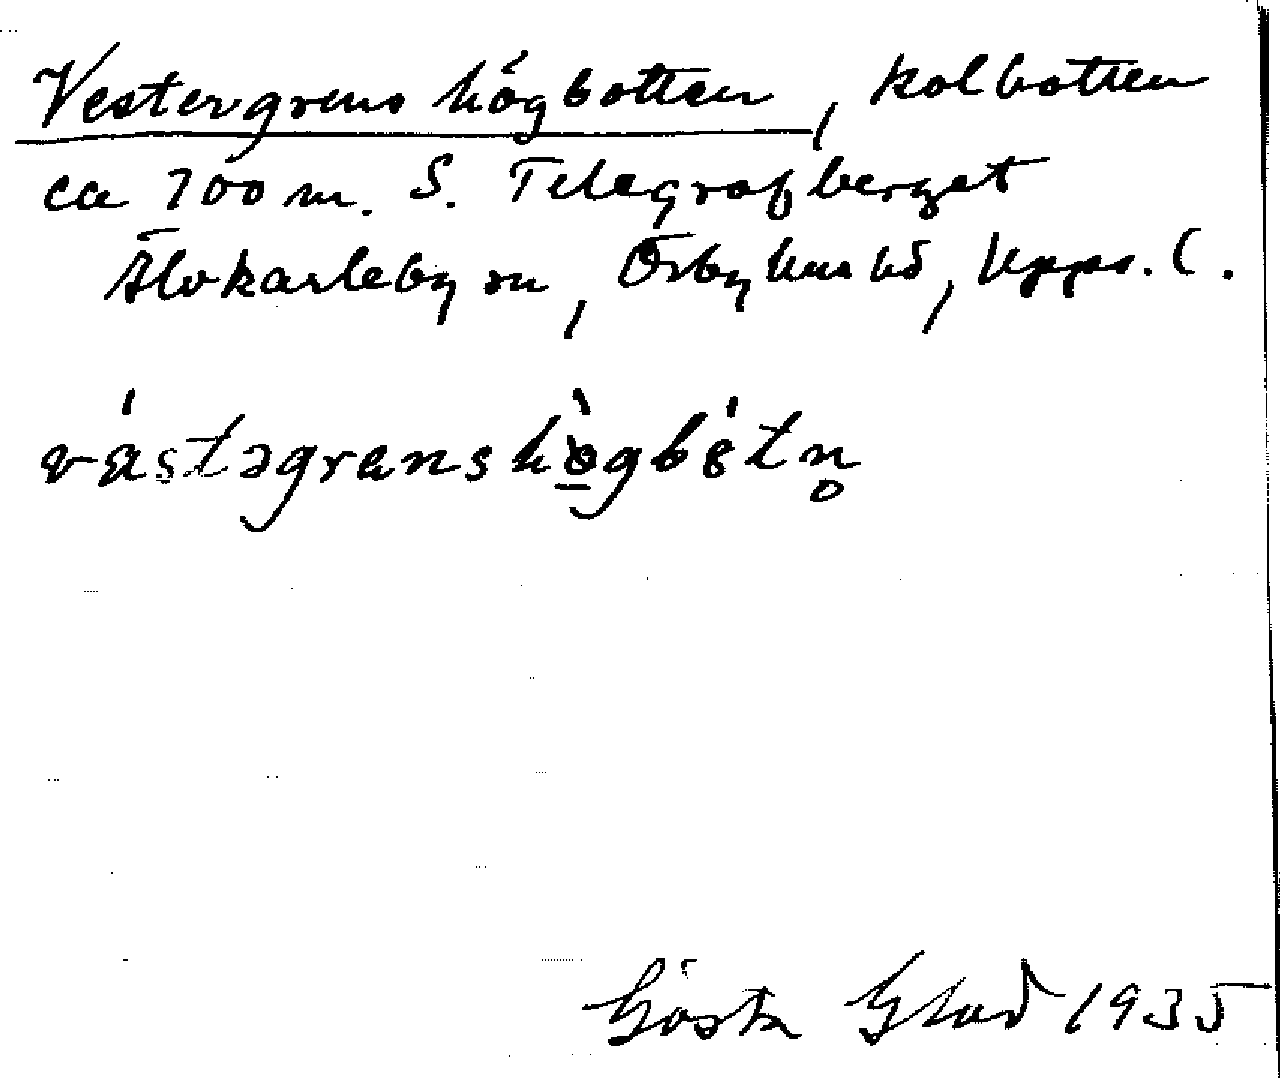 Vestergrens högbotten, kolbotten
ca 700 m. S. Telegrafberget
Älvkarleby sn, Örbyhus hd, Upps. l.
västəgrenshögbòtn̥
Gösta Glad 1935